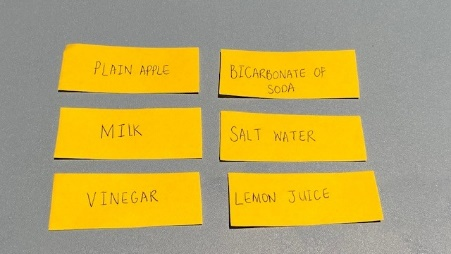 PLAIN APPLE
BICARBONATE OF
SODA
MILK
SALT WATER
VINEGAR
LEMON JUICE